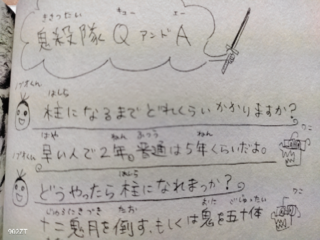 鬼殺隊QアンドA
きさつたい キュー エー
はしら
柱になるまでどれくらいかかりますか?
はや ねん ふつう ねん
早い人で2年。普通は5年くらいだよ。
はしら
どうやったら柱になれまっか?
じゅうにきづき たお おに ごじゅったい
十二鬼月を倒す、もしくは鬼を五十体